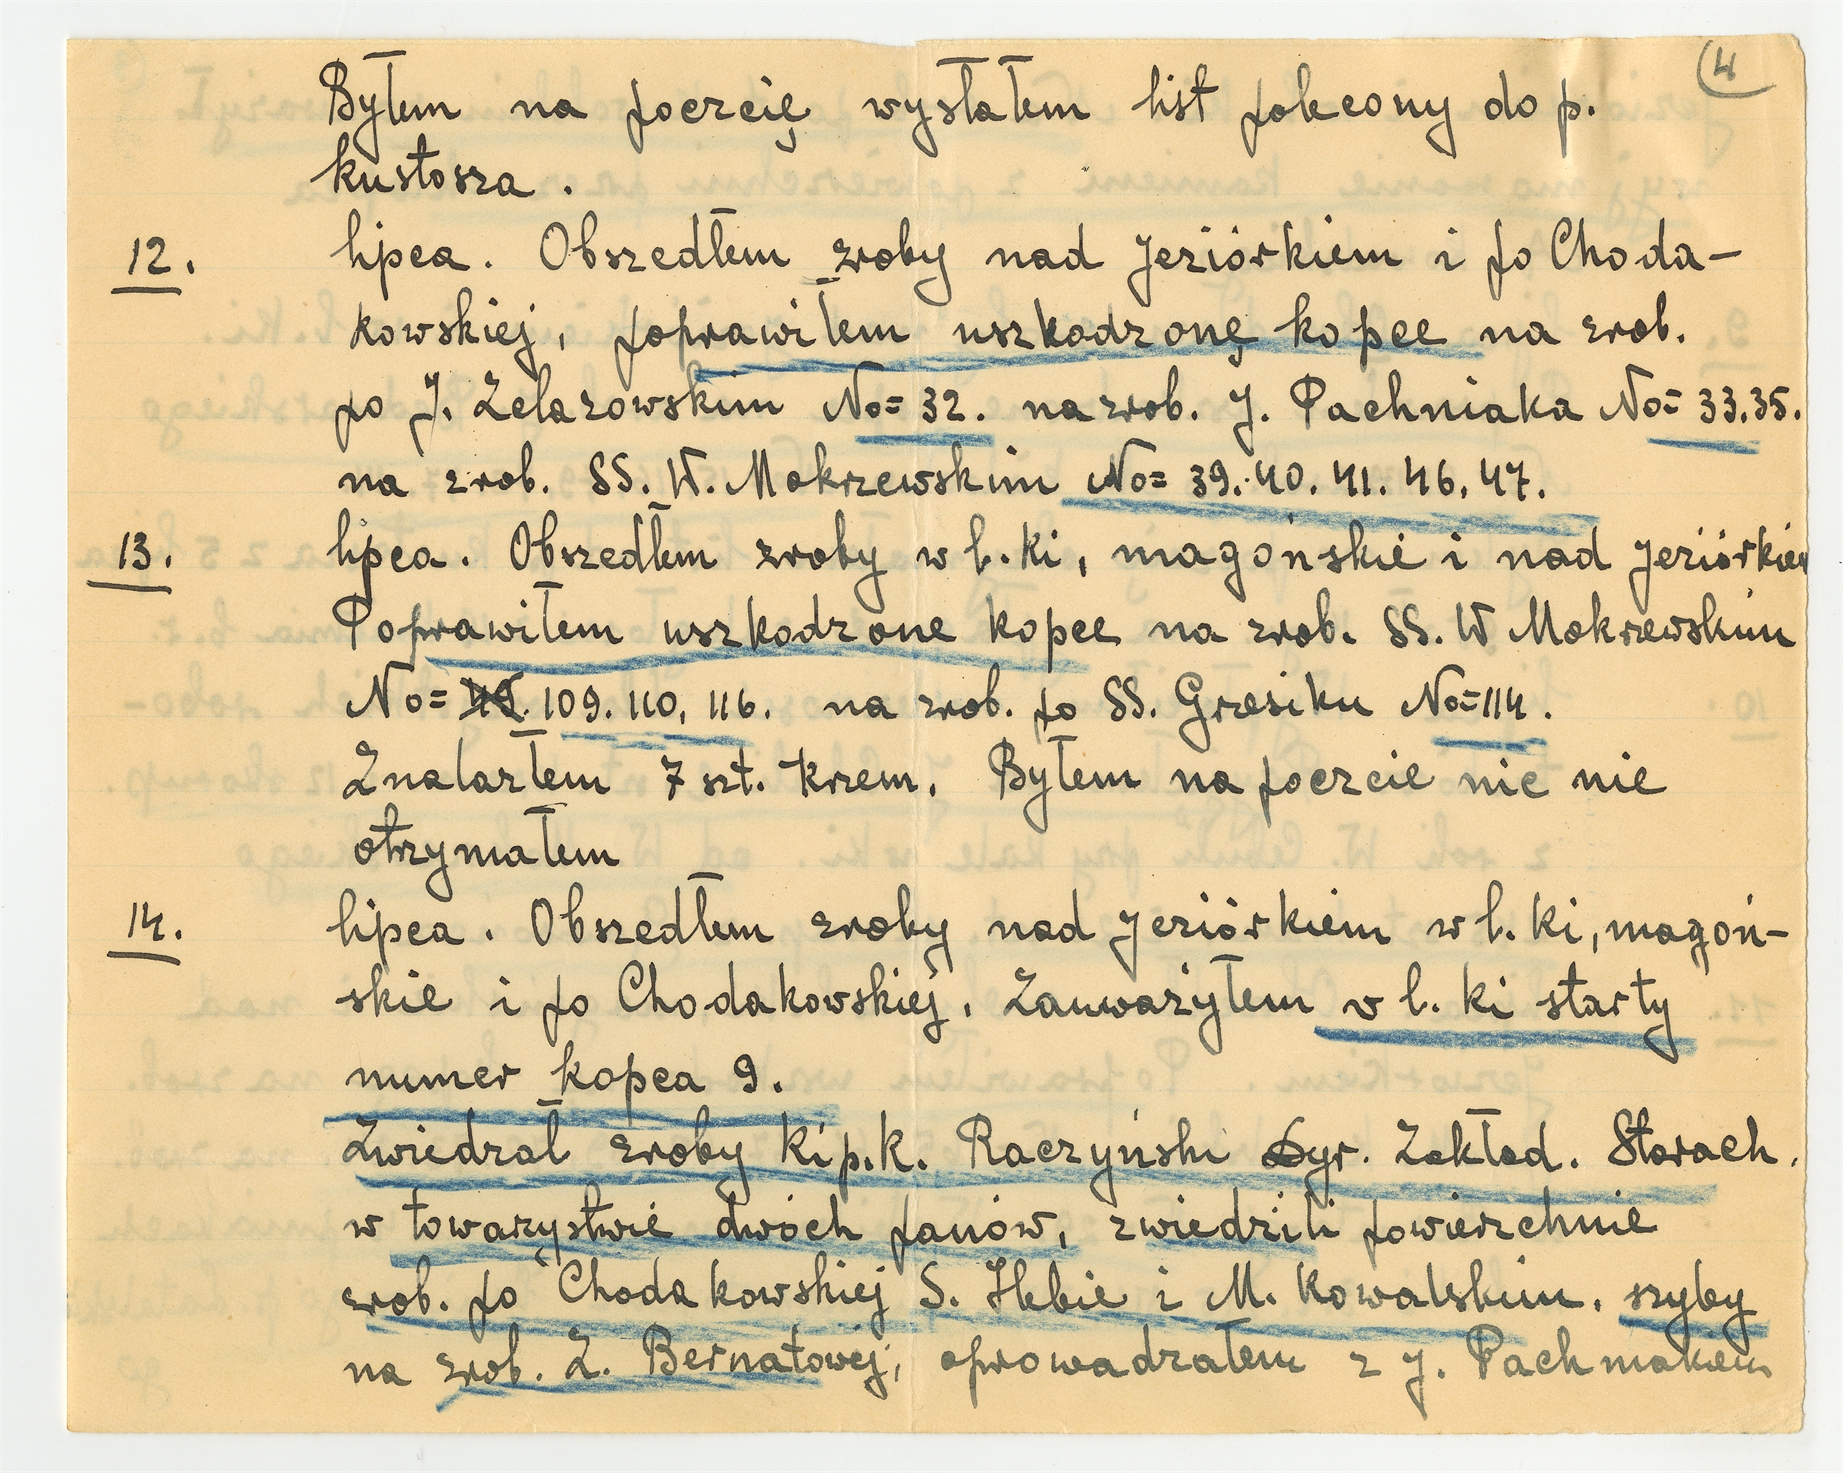 4
Byłem na poczcię wysłałem list polecony do p.
kustosza.
12. lipca. Obszedłem zroby nad Jeziórkiem i po Choda-
kowskiej, poprawiłem uszkodzonę kopce na zrob.
po J. Żelazowskim No= 32. na zrob. J. Pachniaka No= 33.35.
na zrob. SS. W. Mokrzewskim No= 39. 40. 41. 46. 47.
13. lipca. Obszedłem zroby w l. ki, magońskie i nad Jeziórkiem
Poprawiłem uszkodzone kopce na zrob. SS. W Mokrzewskim
No= 109. 110, 116. na zrob. po SS. Grzesiku No=114.
Znalazłem 7 szt. krzem. Byłem na poczcie nic nie
otrzymałem
14. lipca. Obszedłem zroby nad Jeziórkiem w l. ki, magoń-
skie i po Chodakowskiej. Zauważyłem w l. ki starty
numer kopca 9.
Zwiedzał zroby Ki p.k. Raczyński Dyr. Zakład. Starach.
w towarzystwie dwóch panów, zwiedzili powierzchnie
zrob. po Chodakowskiej S. Hebie i M. Kowalskim. szyby
na zrob. Z. Bernatowej, oprowadzałem z J. Pachniakiem